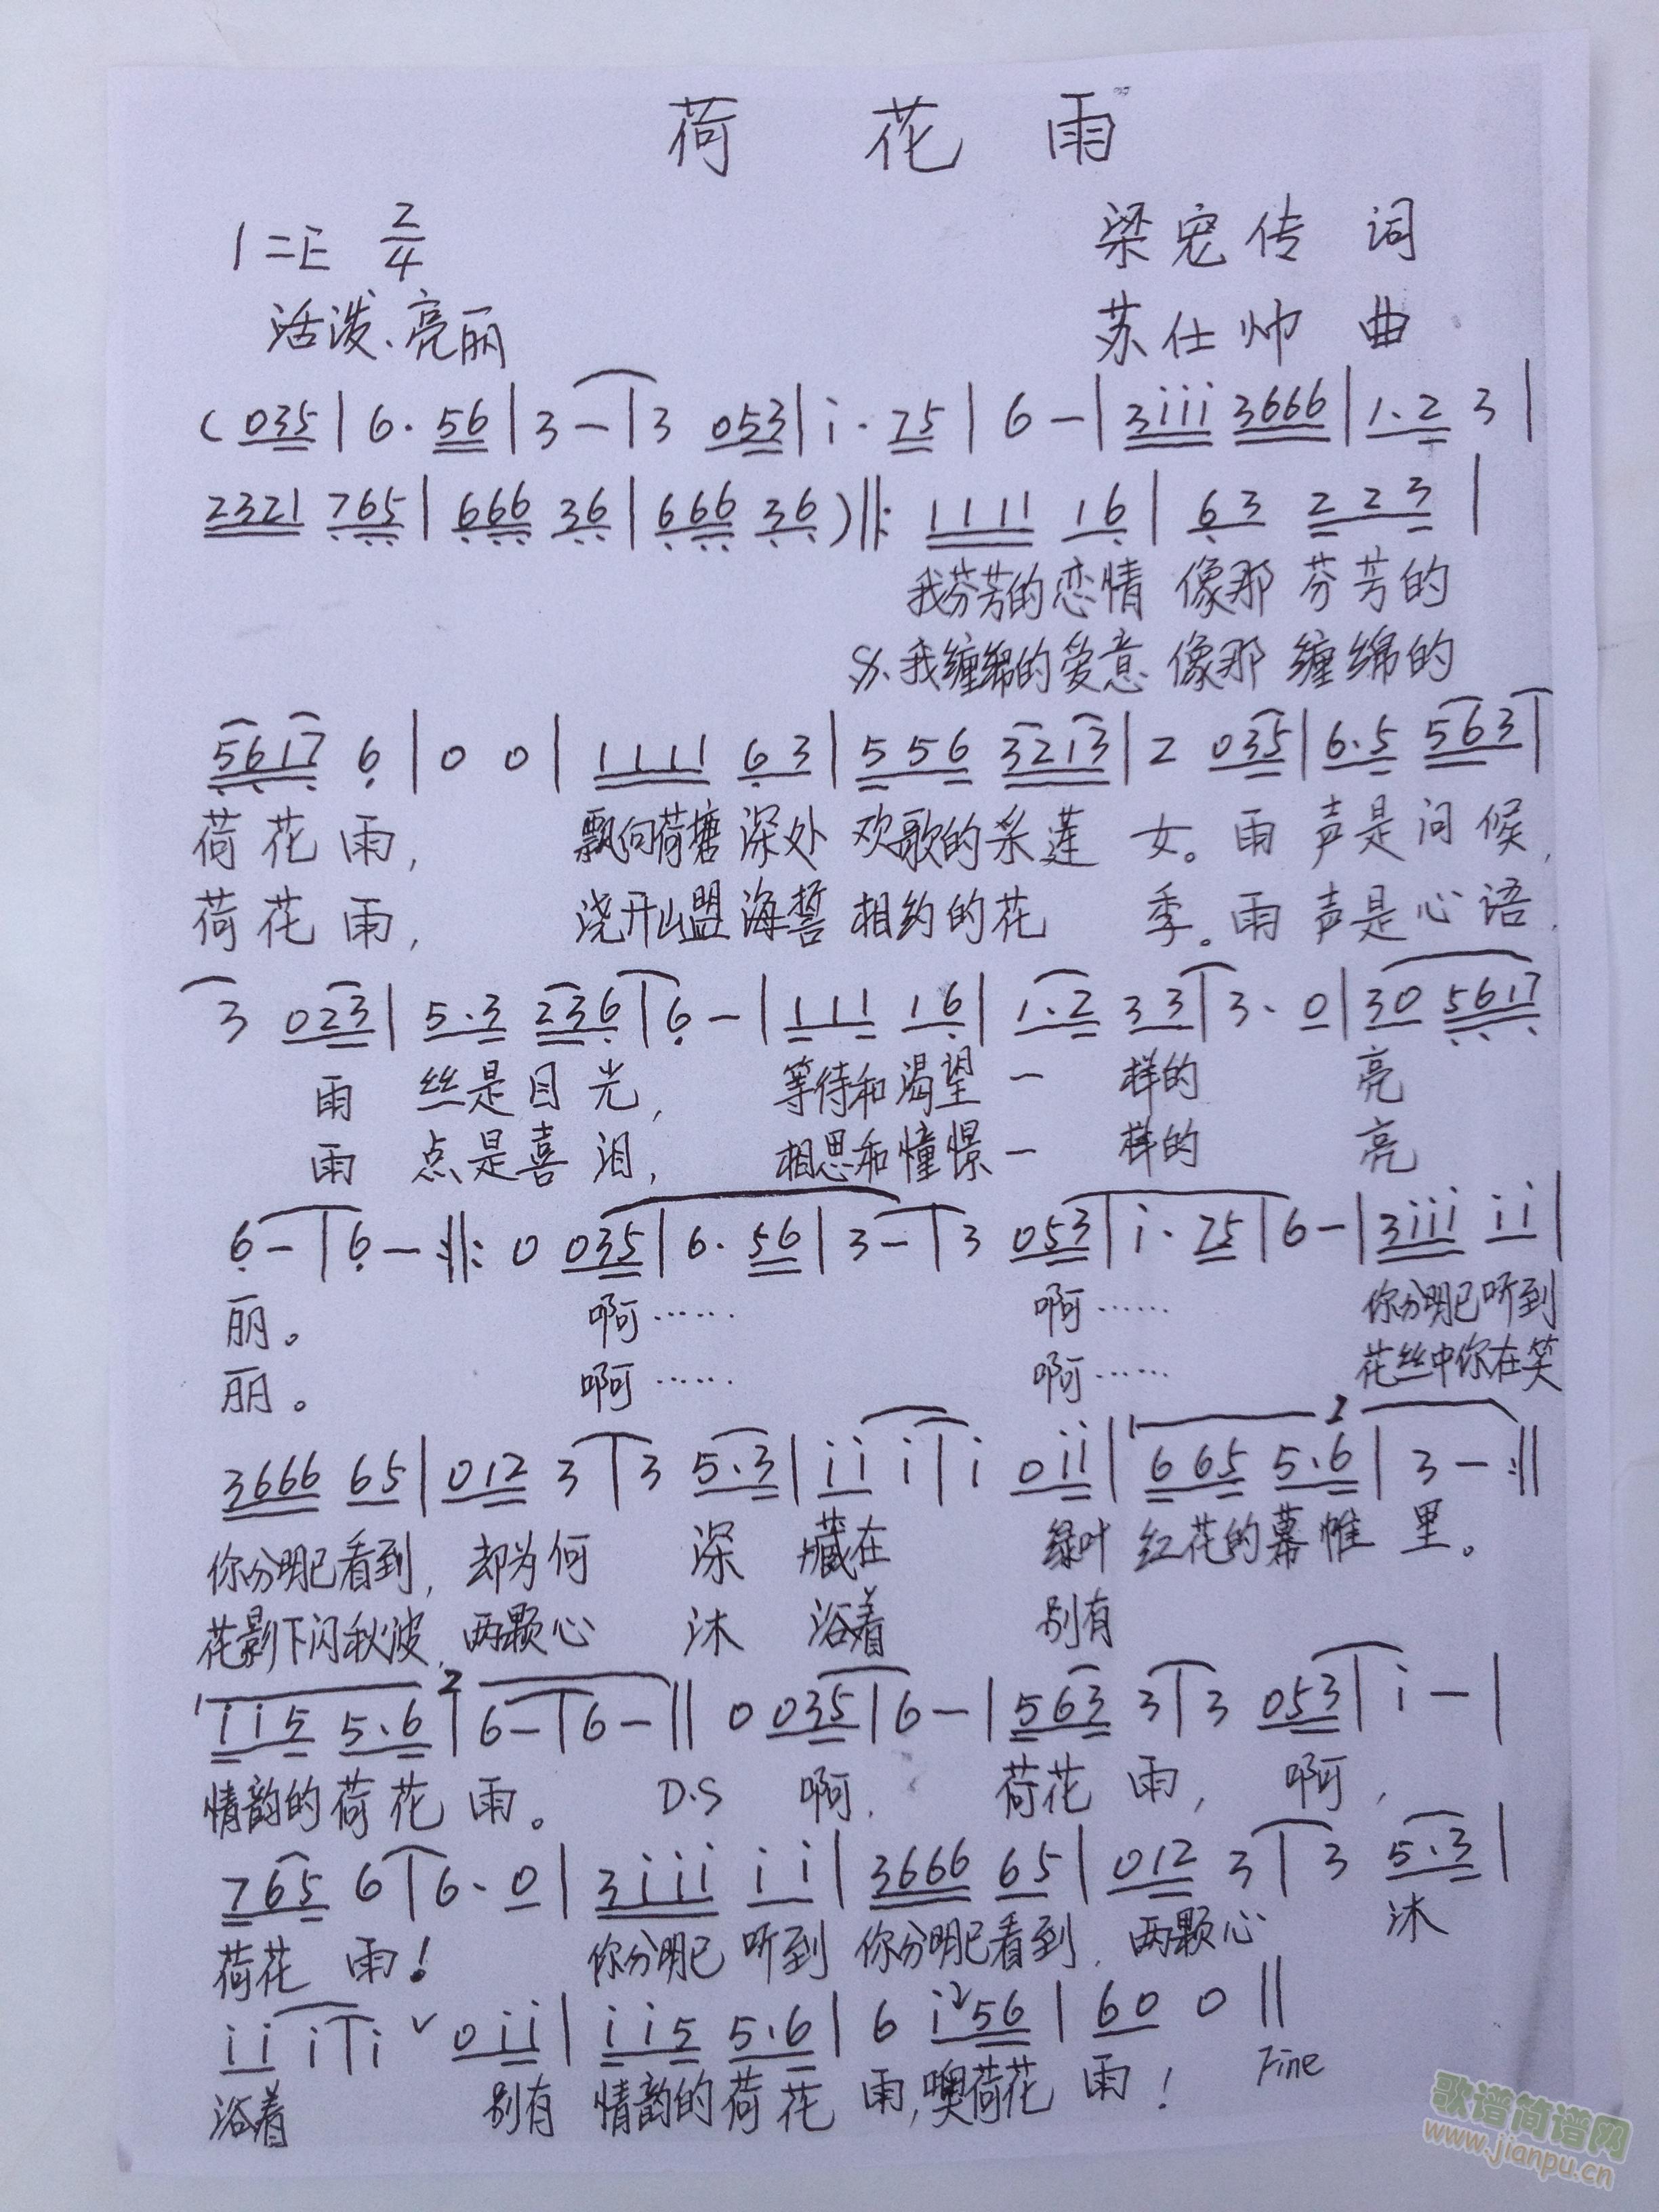 荷 花 雨
1=E 2/4
梁宠传 词
活泼、亮丽
苏仕帅 曲
( 035 | 6· 56 | 3 — | 3 053 | i · 75 | 6 — | 3iii 3666 | 1·2 3 |
2321 765 | 666 36 | 666 36 ) ‖: 1111 16 | 63 223 |
我芬芳的恋情 像那 芬芳的
我缠绵的爱意 像那 缠绵的
5617 6 | 0 0 | 1111 63 | 556 3213 | 2 035 | 6·5 563 |
荷花雨, 飘向荷塘深处 欢歌的采莲 女。雨 声是问候,
荷花雨, 浇开山盟海誓 相约的花 季。雨 声是心语,
3 023 | 5·3 236 | 6 — | 111 16 | 1·2 33 | 3· 0 | 30 5617
雨 丝是目光, 等待和渴望 一 样的 亮
雨 点是喜泪, 相思和憧憬 一 样的 亮
6 — | 6 — :‖: 0 035 | 6· 56 | 3 — | 3 053 | i · 75 | 6 — | 3iii ii |
丽。 啊…… 啊…… 你分明已听到
丽。 啊…… 啊…… 花丝中你在笑
3666 65 | 012 3 | 3 5·3 | ii i | i 0ii | 1 665 5·6 | 2 3 — :‖
你分明已看到, 却为何 深 藏在 绿叶 红花的幕帷 里。
花影下闪秋波, 两颗心 沐 浴着 别有
1 ii5 5·6 | 2 6 — | 6 — ‖ 0 035 | 6 — | 563 3 | 3 053 | i — |
情韵的荷花 雨。 D.S 啊, 荷花 雨, 啊,
765 6 | 6· 0 | 3iii ii | 3666 65 | 012 3 | 3 5·3 |
荷花 雨! 你分明已 听到 你分明已看到, 两颗心 沐
ii i | i 0ii | ii5 5·6 | 6 i56 | 60 0 ‖
浴着 别有 情韵的荷花 雨,噢荷花 雨! Fine
歌谱简谱网
www.jianpu.cn